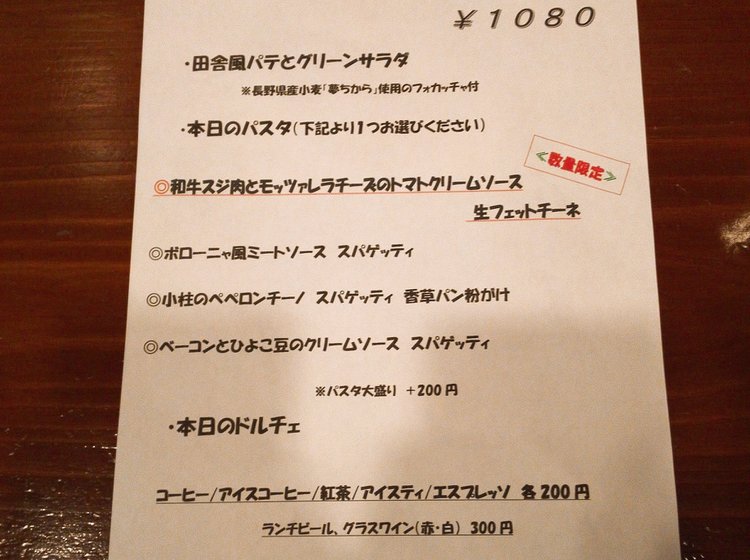 ￥１０８０
・田舎風パテとグリーンサラダ
※長野県産小麦「夢ちから」使用のフォカッチャ付
・本日のパスタ（下記より１つお選びください）
≪数量限定≫
◎和牛スジ肉とモッツァレラチーズのトマトクリームソース
生フェットチーネ
◎ボローニャ風ミートソース　スパゲッティ
◎小柱のペペロンチーノ　スパゲッティ　香草パン粉がけ
◎ベーコンとひよこ豆のクリームソース　スパゲッティ
※パスタ大盛り　＋200円
・本日のドルチェ
コーヒー/アイスコーヒー/紅茶/アイスティ/エスプレッソ　各200円
ランチビール、グラスワイン（赤・白）　300円